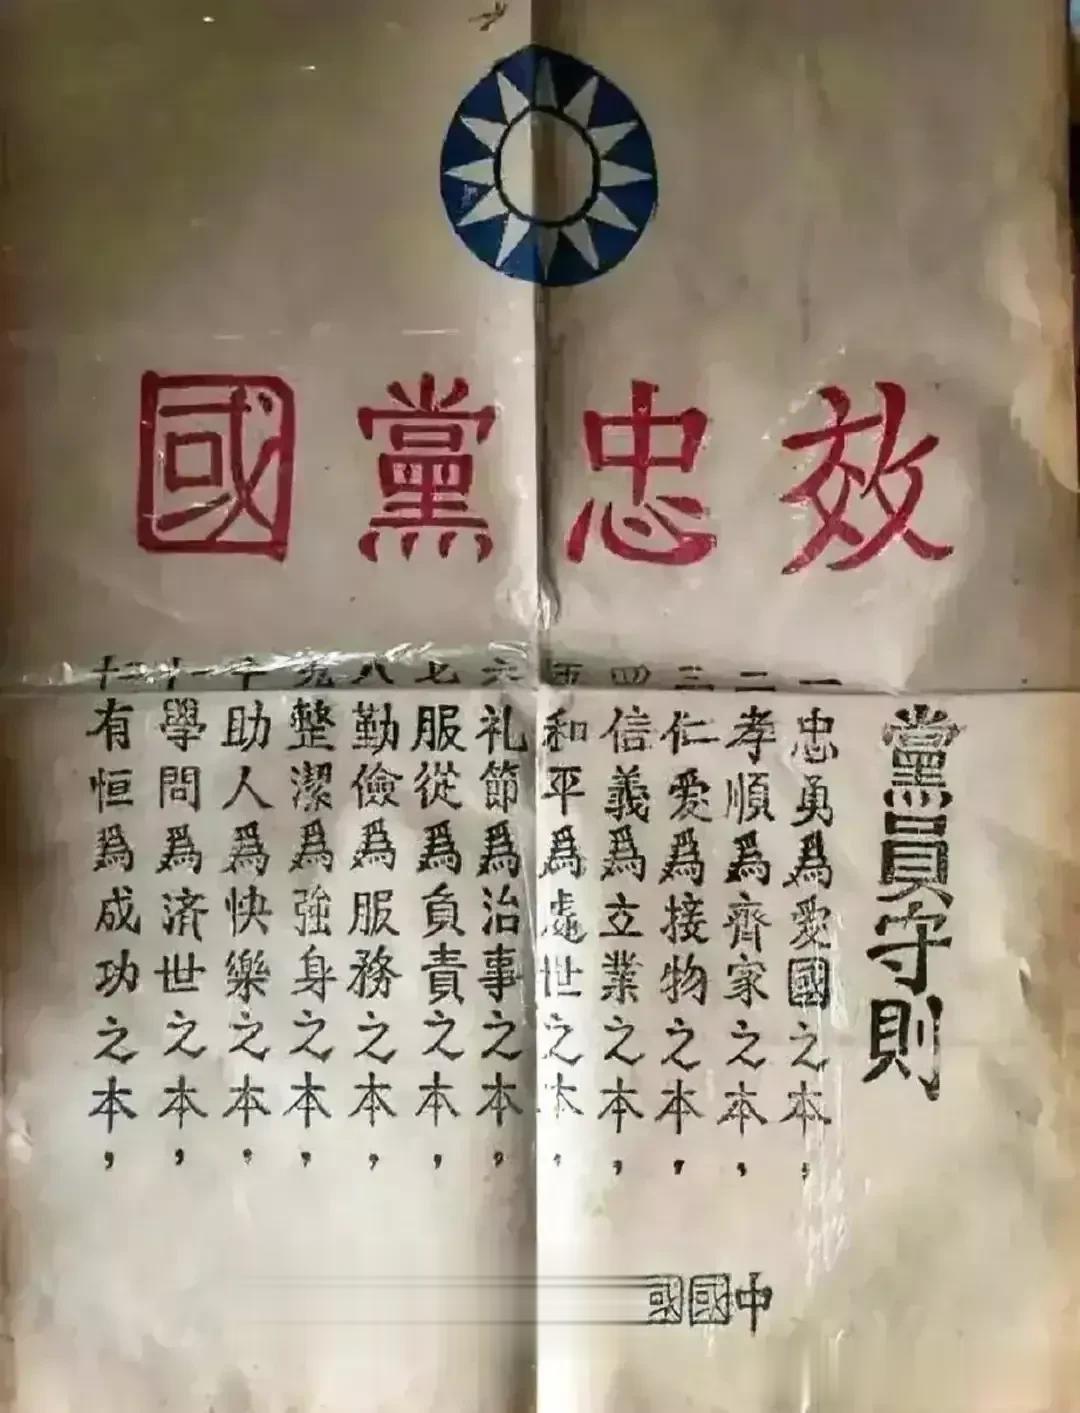 效忠黨國
黨員守則
一 忠勇爲愛國之本，
二 孝順爲齊家之本，
三 仁愛爲接物之本，
四 信義爲立業之本，
五 和平爲處世之本，
六 礼節爲治事之本，
七 服從爲負責之本，
八 勤儉爲服務之本，
九 整潔爲強身之本，
十 助人爲快樂之本，
十一 學問爲済世之本，
十二 有恒爲成功之本，
中國國